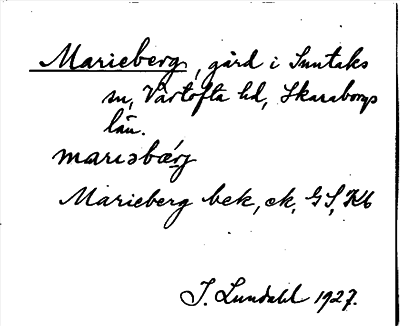 Marieberg, gård i Suntaks
sn, Vartofta hd, Skaraborgs
län.
marisbærj
Marieberg bek, ek, GS, Kb
J. Lundahl 1927.